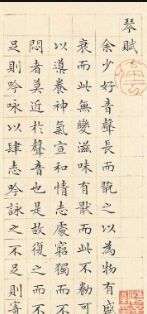 琴賦
余少好音聲長而翫之以為物有盛
衰而此無變滋味有猒而此不勌可
以導養神氣宣和情志處窮獨而不
悶者莫近於聲音也是故復之而不
足則吟詠以肆志吟詠之不足則寄